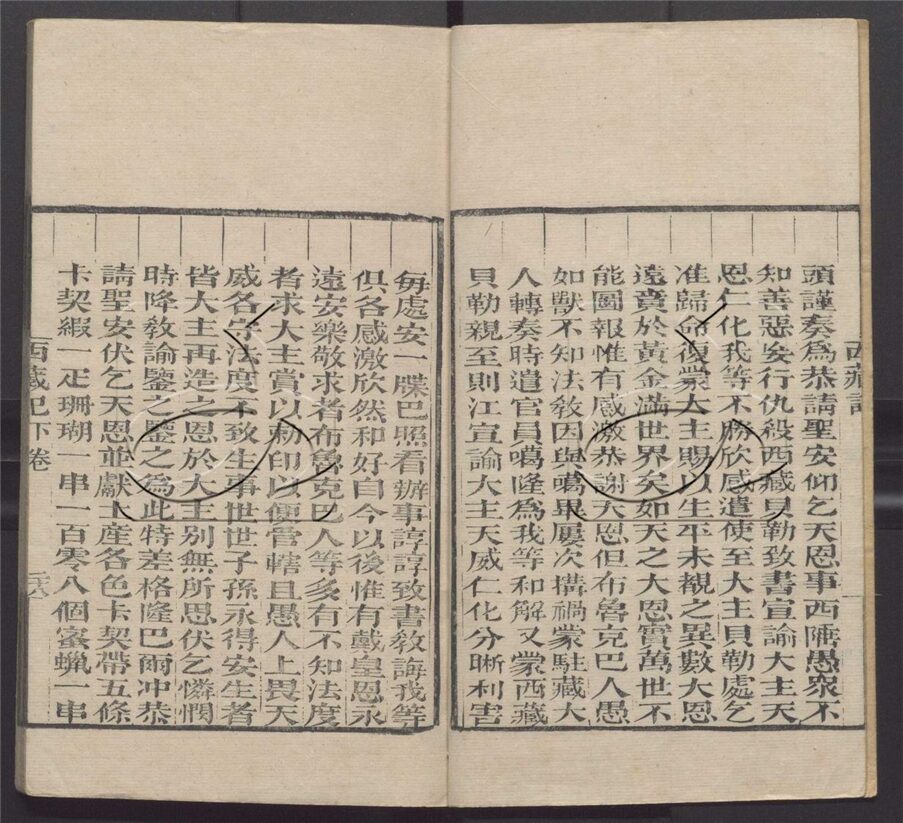 頭謹奏爲恭請聖安仰乞天恩事西陲愚衆不
知善惡妄行仇殺西藏貝勒致書宣諭大主天
恩仁化我等不勝欣感遣使至大主貝勒處乞
准歸命復蒙大主賜以生平未覩之異數大恩
遠賁於黃金滿世界矣如天之大恩實萬世不
能圖報惟有感激恭謝天恩但布魯克巴人愚
如獸不知法敎因與噶畢屢次搆禍蒙駐藏大
人轉奏時遣官員噶隆爲我等和解又蒙西藏
貝勒親至則江宣諭大主天威仁化分晰利害
每處安一牒巴照看辦事諄諄致書敎誨我等
俱各感激欣然和好自今以後惟有戴皇恩永
遠安樂敬求者布魯克巴人等多有不知法度
者求大主賞以勅印以便管轄且愚人上畏天
威各守法度不致生事世世子孫永得安生者
皆大主再造之恩於大主別無所思伏乞憐憫
時降敎諭鑒之鑒之爲此特差格隆巴爾冲恭
請聖安伏乞天恩並獻土產各色卡契帶五條
卡契緞一疋珊瑚一串一百零八個蜜蠟一串
西藏記下卷